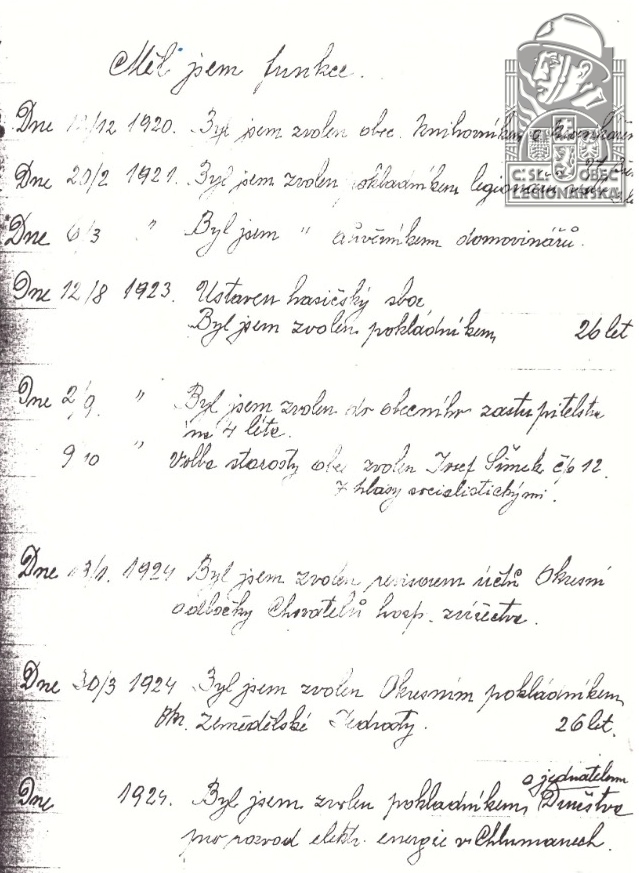 Měl jsem funkce.
Dne 12/12 1920. Byl jsem zvolen obec. knihovníkem a
Dne 20/2 1921. Byl jsem zvolen pokladníkem legionářů
ČsSL. OBEC
LEGIONÁŘSKÁ
Dne 6/3 " Byl jsem " důvěrníkem domovinářů.
Dne 12/8 1923. Ustaven hasičský sbor
Byl jsem zvolen pokládníkem, 26 let
Dne 2/9. " Byl jsem zvolen do obecního zastupitelstva
na 4 léta.
9 10 " Volba starosty obce zvolen Josef Šimek čp 12.
7 hlasy socialistickými.
Dne 13/1. 1924 Byl jsem zvolen revisorem účtů Okresní
odbočky Chovatelů hosp. zvířectva.
Dne 30/3 1924 Byl jsem zvolen Okresním pokládníkem,
Okr. Zemědělské Jednoty. 26 let.
a jednatelem
Dne 1924. Byl jsem zvolen pokládníkem, Družstva
pro rozvod elektr. energie v Chlumanech.